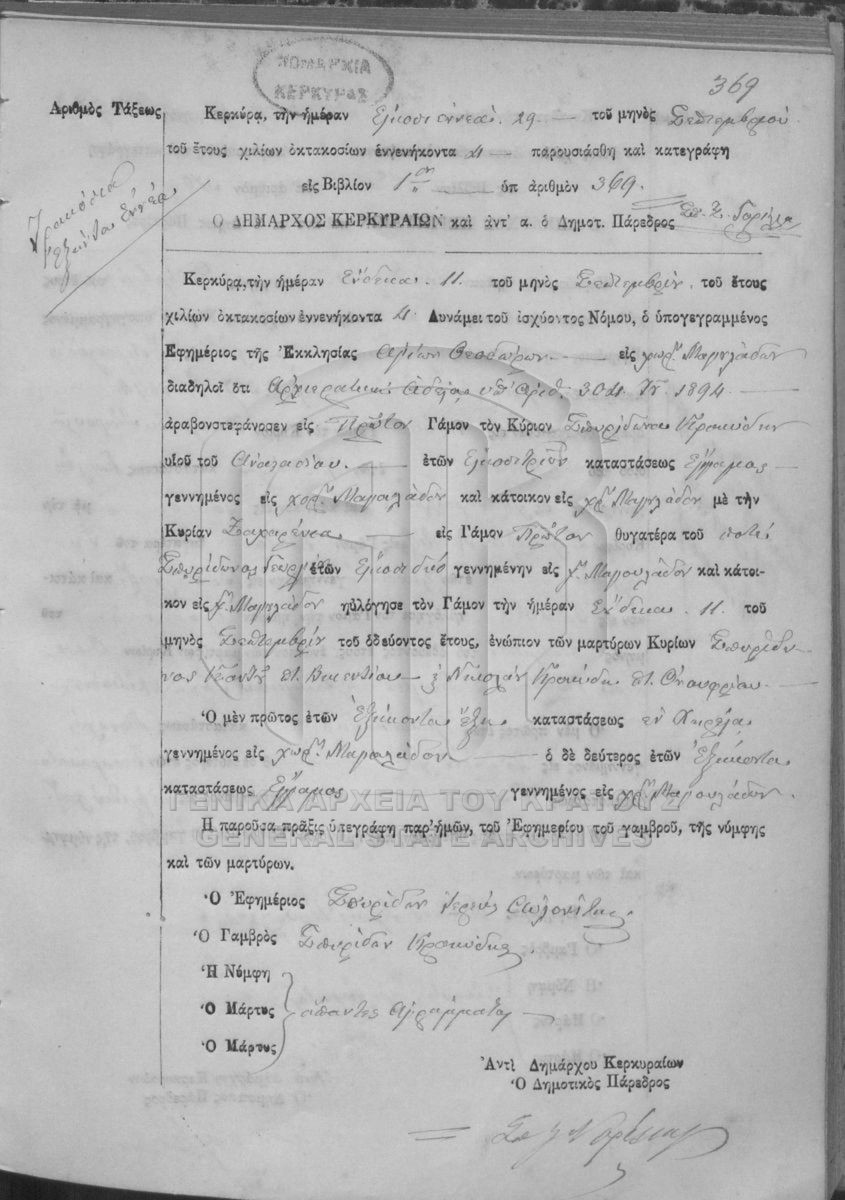 ΝΟΜΑΡΧΙΑ
ΚΕΡΚΥΡΑΣ
369
Ἀριθμὸς Τάξεως
Τριακόσια
ἑξήντα ἐννέα
Κερκύρα, τὴν ἡμέραν Εἴκοσι ἐννέα 29 τοῦ μηνὸς Σεπτεμβρίου
τοῦ ἔτους χιλίων ὀκτακοσίων ἐννενήκοντα 4 παρουσιάσθη καὶ κατεγράφη
εἰς Βιβλίον 1ον ὑπ ἀριθμὸν 369.
Ο ΔΗΜΑΡΧΟΣ ΚΕΡΚΥΡΑΙΩΝ καὶ ἀντ' α. ὁ Δημοτ. Πάρεδρος
Κερκύρα, τὴν ἡμέραν Ἕνδεκα 11 τοῦ μηνὸς Σεπτεμβρίν τοῦ ἔτους
χιλίων ὀκτακοσίων ἐννενήκοντα 4 Δυνάμει τοῦ ἰσχύοντος Νόμου, ὁ ὑπογεγραμμένος
Ἐφημέριος τῆς Ἐκκλησίας Ἁγίων Θεοδώρων εἰς χωρ. Μαρμλάδων
διαδηλοῖ ὅτι Ἀρχιερατικῆς Ἀδείας ὑπ' Ἀριθ. 304 1894
ἀραβονστεφάνοσεν εἰς Πρῶτον Γάμον τὸν Κύριον Σπυρίδωνα Κροκύδην
υἱοῦ τοῦ Ἀναστασίου ἐτῶν Εἰκοσιτριῶν καταστάσεως Ἔγγαμος
γεννημένος εἰς χορ. Μαρολάδον καὶ κάτοικον εἰς χρ. Μαρμλάδον μὲ τὴν
Κυρίαν Ζαχαρένια εἰς Γάμον Πρῶτον θυγατέρα τοῦ ποτὲ
Σπυρίδωνος ἐτῶν Εἴκοσι δύο γεννημένην εἰς χ. Μαρουλάδον καὶ κάτοι-
κον εἰς χ. Μαρμλάδον ηὐλόγησε τὸν Γάμον τὴν ἡμέραν Ἕνδεκα 11 τοῦ
μηνὸς Σεπτεμβρίν τοῦ ὁδεύοντος ἔτους, ἐνώπιον τῶν μαρτύρων Κυρίων Σπυρίδω-
νος Βικεντίου Νικολάν Κροκύδη Ὀνουφρίου
Ὁ μὲν πρῶτος ἐτῶν Ἑξήκοντα ἕξι καταστάσεως ἐν Χηρείᾳ
γεννημένος εἰς χωρ. Μαρολάδον ὁ δὲ δεύτερος ἐτῶν Ἑξήκοντα
καταστάσεως Ἔγγαμος γεννημένος εἰς χρ. Μαρουλάδων.
ΓΕΝΙΚΑ ΑΡΧΕΙΑ ΤΟΥ ΚΡΑΤΟΥΣ
Ἡ παροῦσα πρᾶξις ὑπεγράφη παρ' ἡμῶν, τοῦ Ἐφημερίου τοῦ γαμβροῦ, τῆς νύμφης
GENERAL STATE ARCHIVES
καὶ τῶν μαρτύρων.
Ὁ Ἐφημέριος Σπυρίδων ἱερεὺς
Ὁ Γαμβρὸς Σπυρίδων Κροκύδης
Ἡ Νύμφη
Ὁ Μάρτυς ἅπαντες ἀγράμματοι
Ὁ Μάρτυς
Ἀντὶ Δημάρχου Κερκυραίων
Ὁ Δημοτικὸς Πάρεδρος